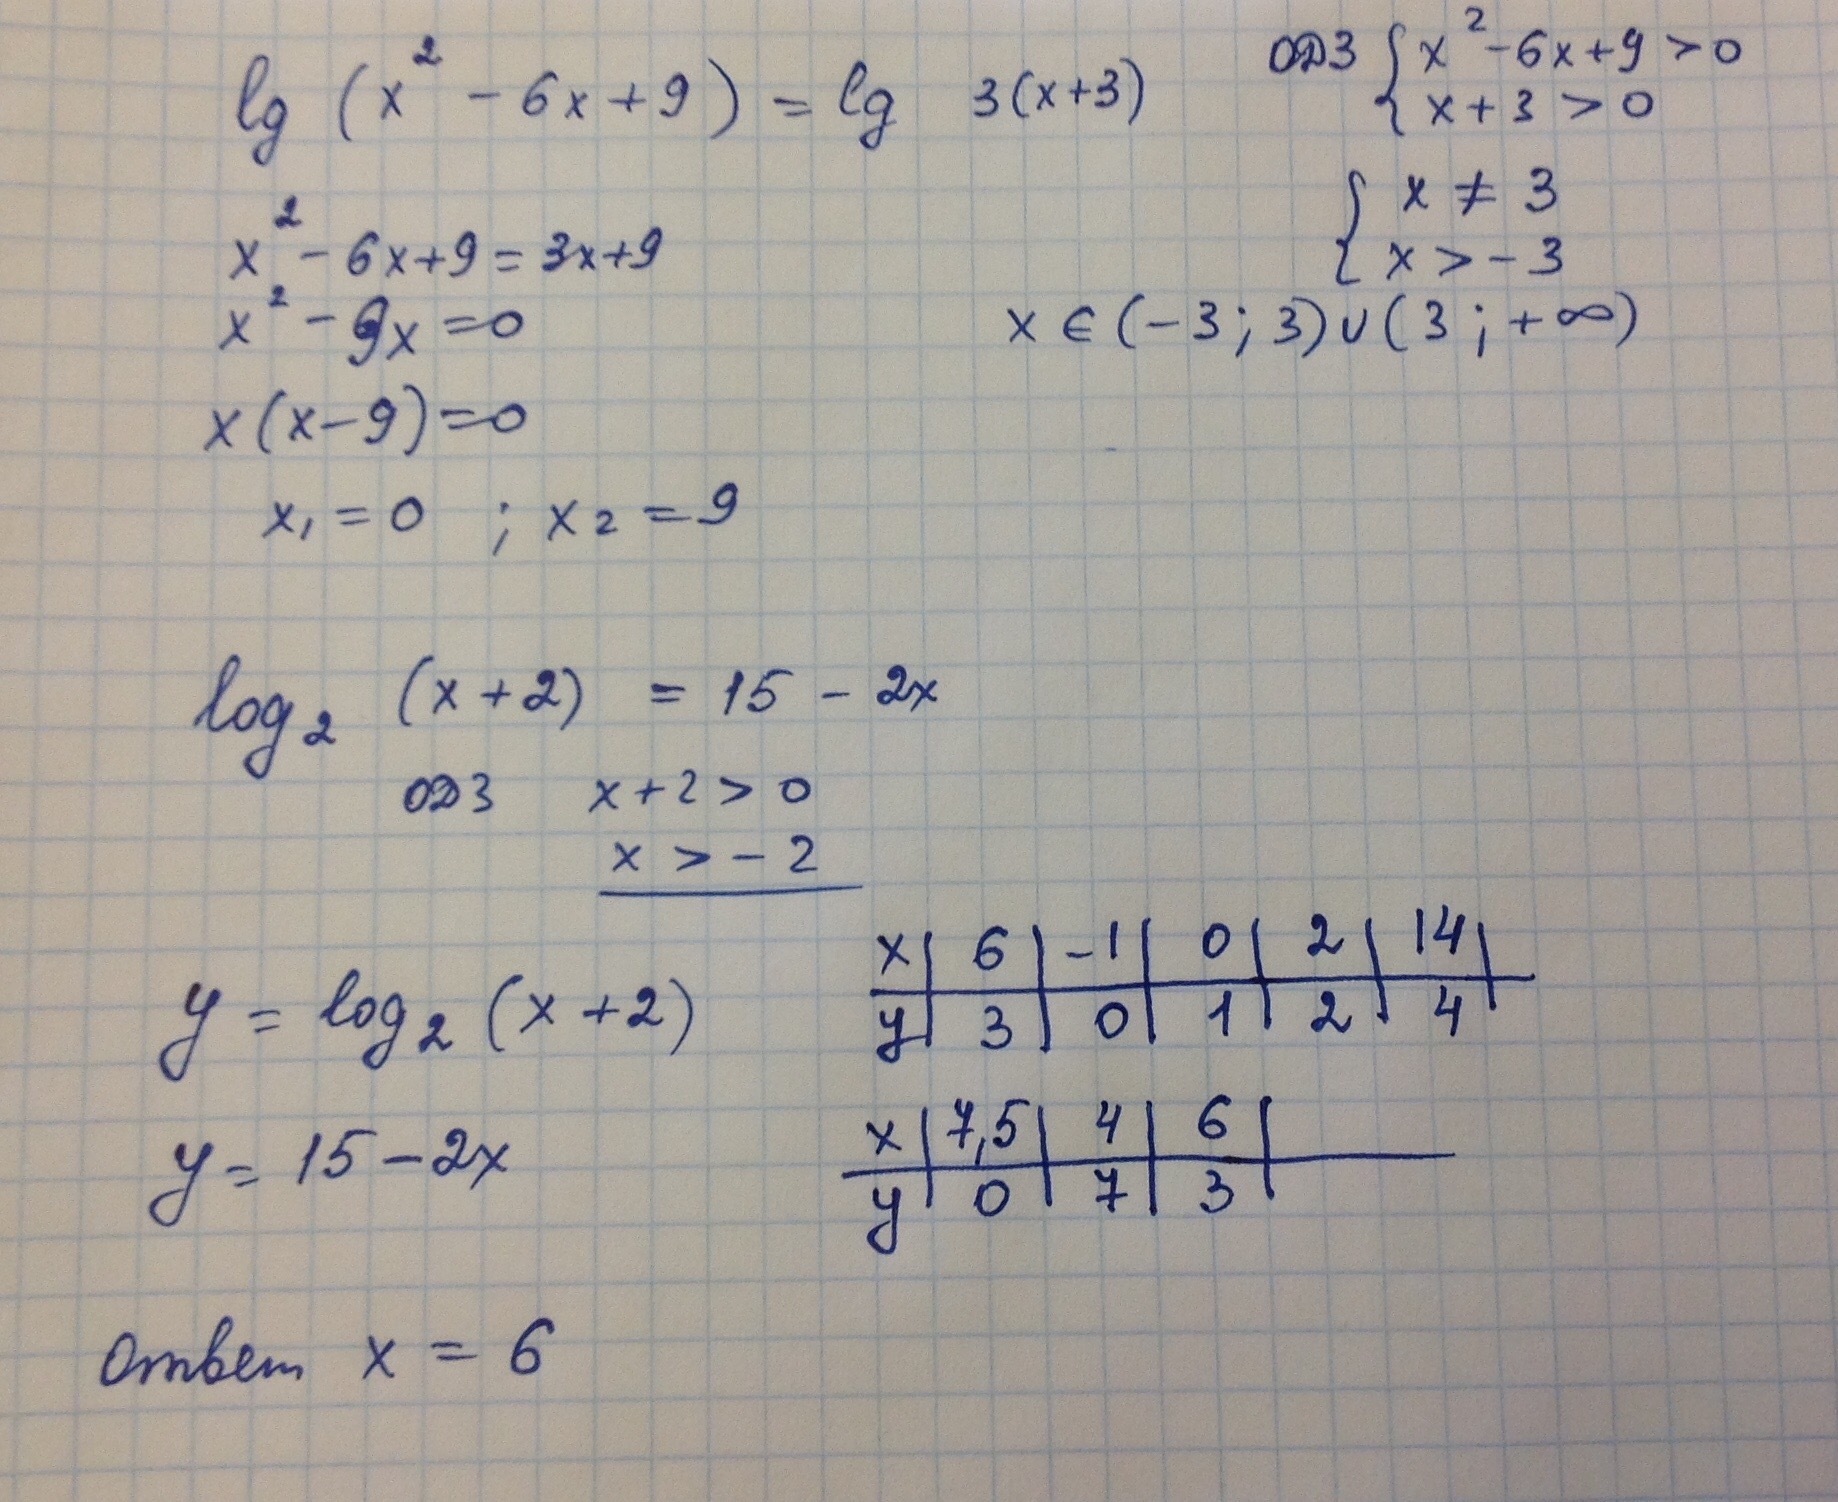 lg (x² - 6x + 9) = lg 3(x+3)
ОДЗ { x² - 6x + 9 > 0
x + 3 > 0
{ x ≠ 3
x > -3
x ∈ (-3; 3) ∪ (3; +∞)
x² - 6x + 9 = 3x + 9
x² - 9x = 0
x(x - 9) = 0
x₁ = 0 ; x₂ = 9
log₂ (x + 2) = 15 - 2x
ОДЗ x + 2 > 0
x > -2
y = log₂ (x + 2)
x | 6 | -1 | 0 | 2 | 14 |
y | 3 | 0 | 1 | 2 | 4 |
y = 15 - 2x
x | 7,5 | 4 | 6 |
y | 0 | 7 | 3 |
Ответ x = 6